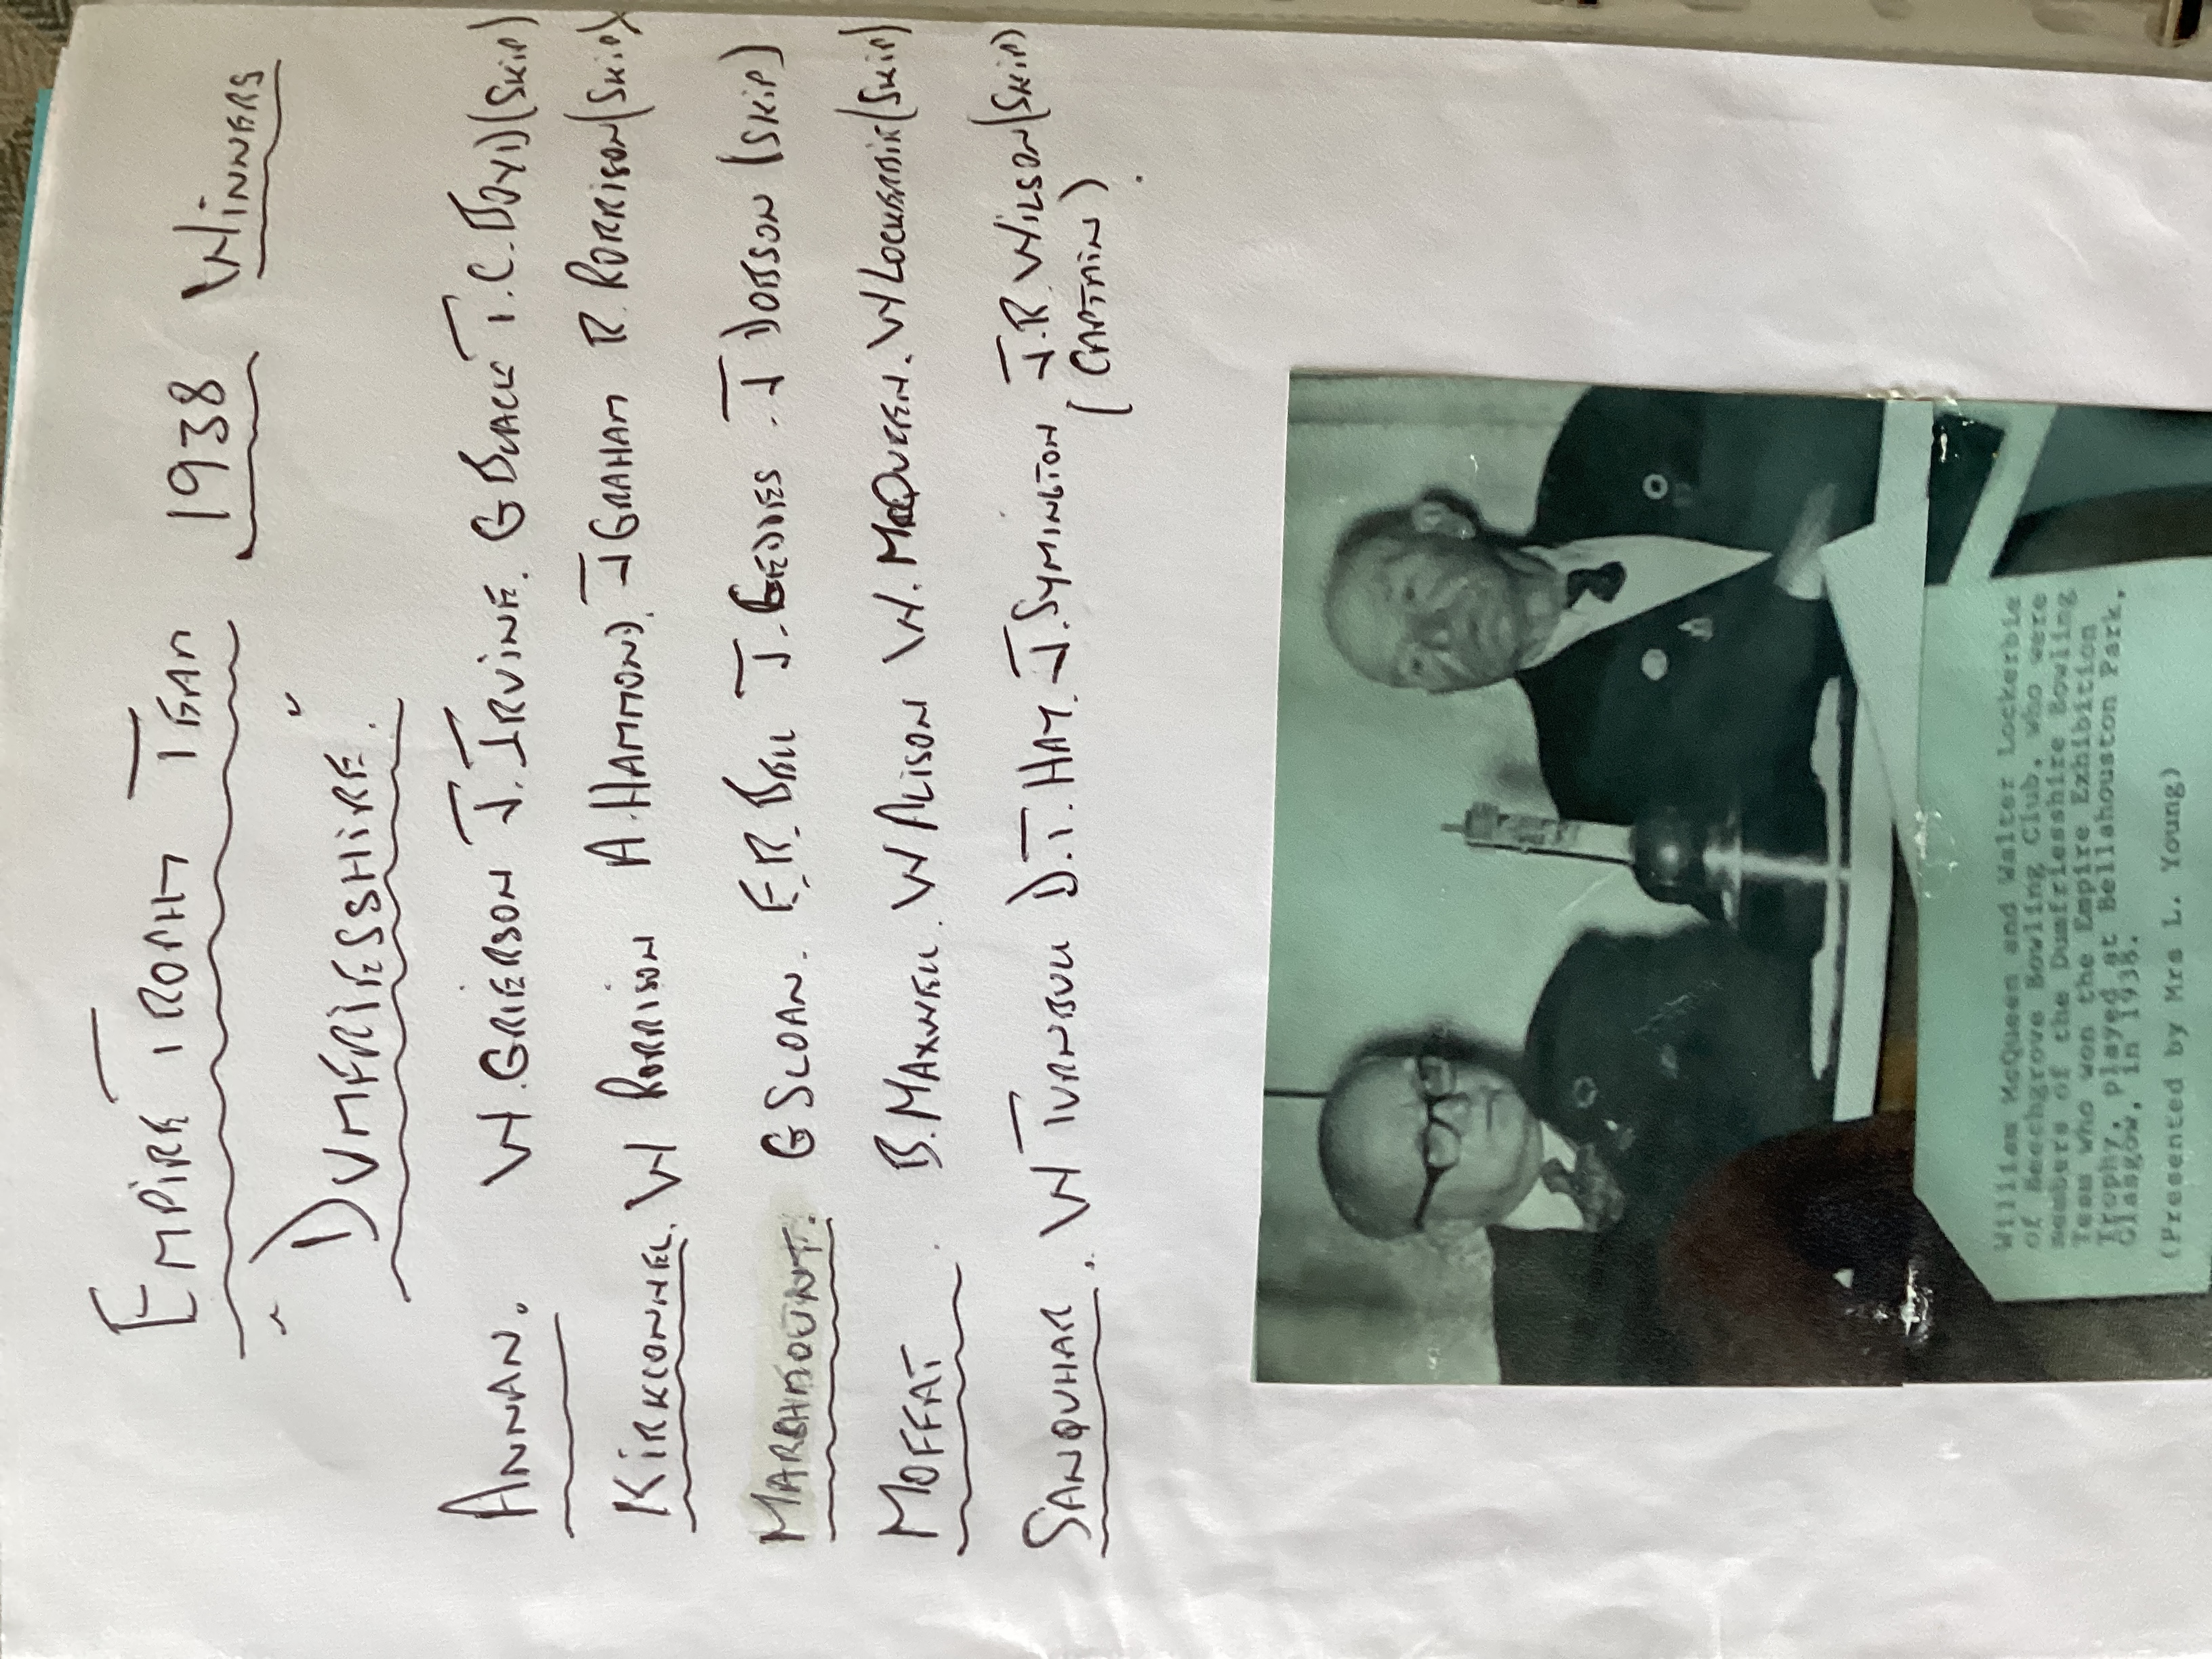 EMPIRE TROPHY TEAM 1938 WINNERS
"DUMFRIESSHIRE"
ANNAN. W. GRIERSON J. IRVINE. G BLACK T.C. BOYD (SKIP)
KIRKCONNEL. W RORRISON A. HAMMOND. J GRAHAM R. RORRISON (SKIP)
MARCHMOUNT. G SLOAN. E.R. BELL J. GEDDES. J DOBSON (SKIP)
MOFFAT. B. MAXWELL. W ALISON W. McQUEEN. W LOCKERBIE (SKIP)
SANQUHAR. W TURNBULL D.T. HAY. J. SYMINGTON J.R. WILSON (SKIP)
(CAPTAIN).
William McQueen and Walter Lockerbie
of Beechgrove Bowling Club, who were
members of the Dumfriesshire Bowling
Team who won the Empire Exhibition
Trophy, played at Bellahouston Park,
Glasgow, in 1938.
(Presented by Mrs L. Young)